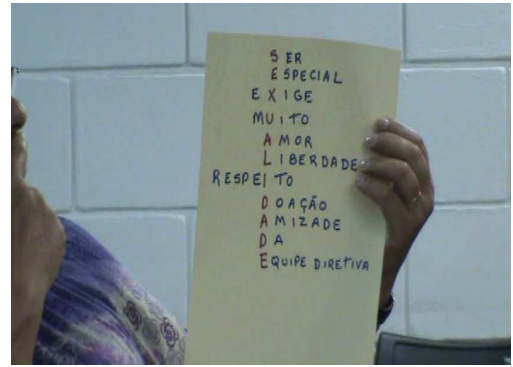 SER
ESPECIAL
EXIGE
MUITO
AMOR
LIBERDADE
RESPEITO
DOAÇÃO
AMIZADE
DA
EQUIPE DIRETIVA